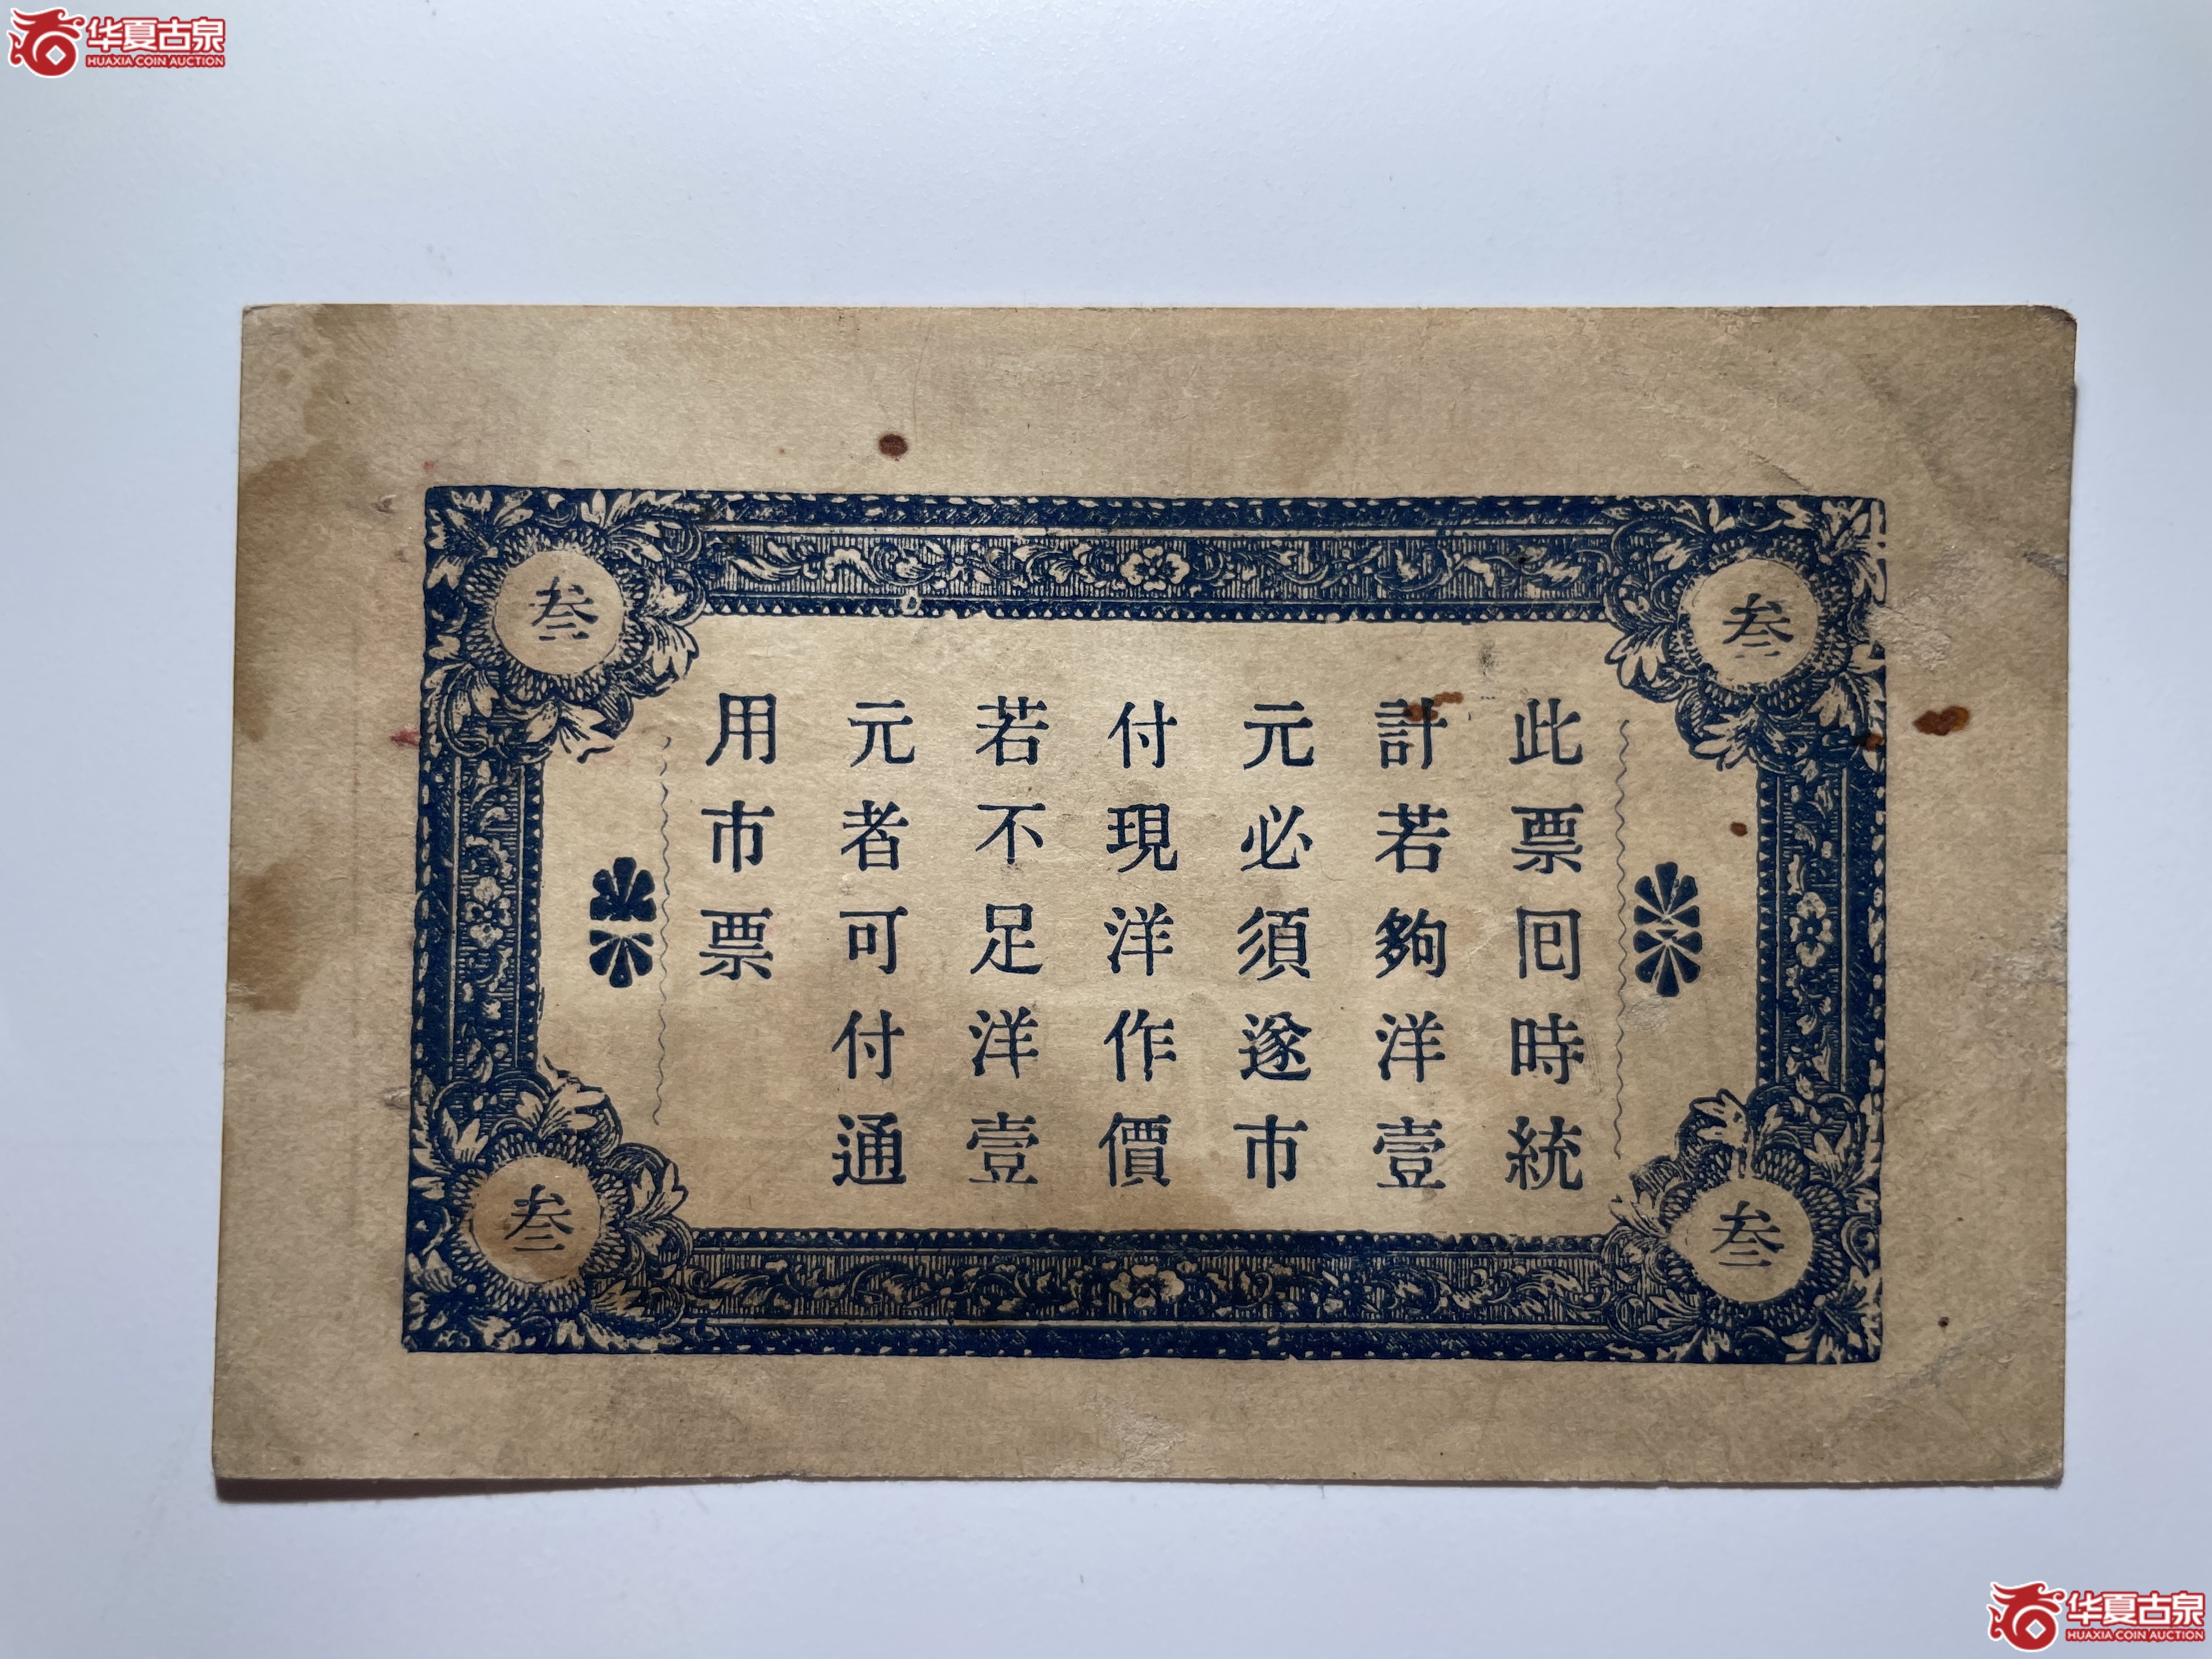 华夏古泉
HUAXIA COIN AUCTION
叁
叁
此票囘時統
計若夠洋壹
元必須遂市
付現洋作價
若不足洋壹
元者可付通
用市票
叁
叁
华夏古泉
HUAXIA COIN AUCTION